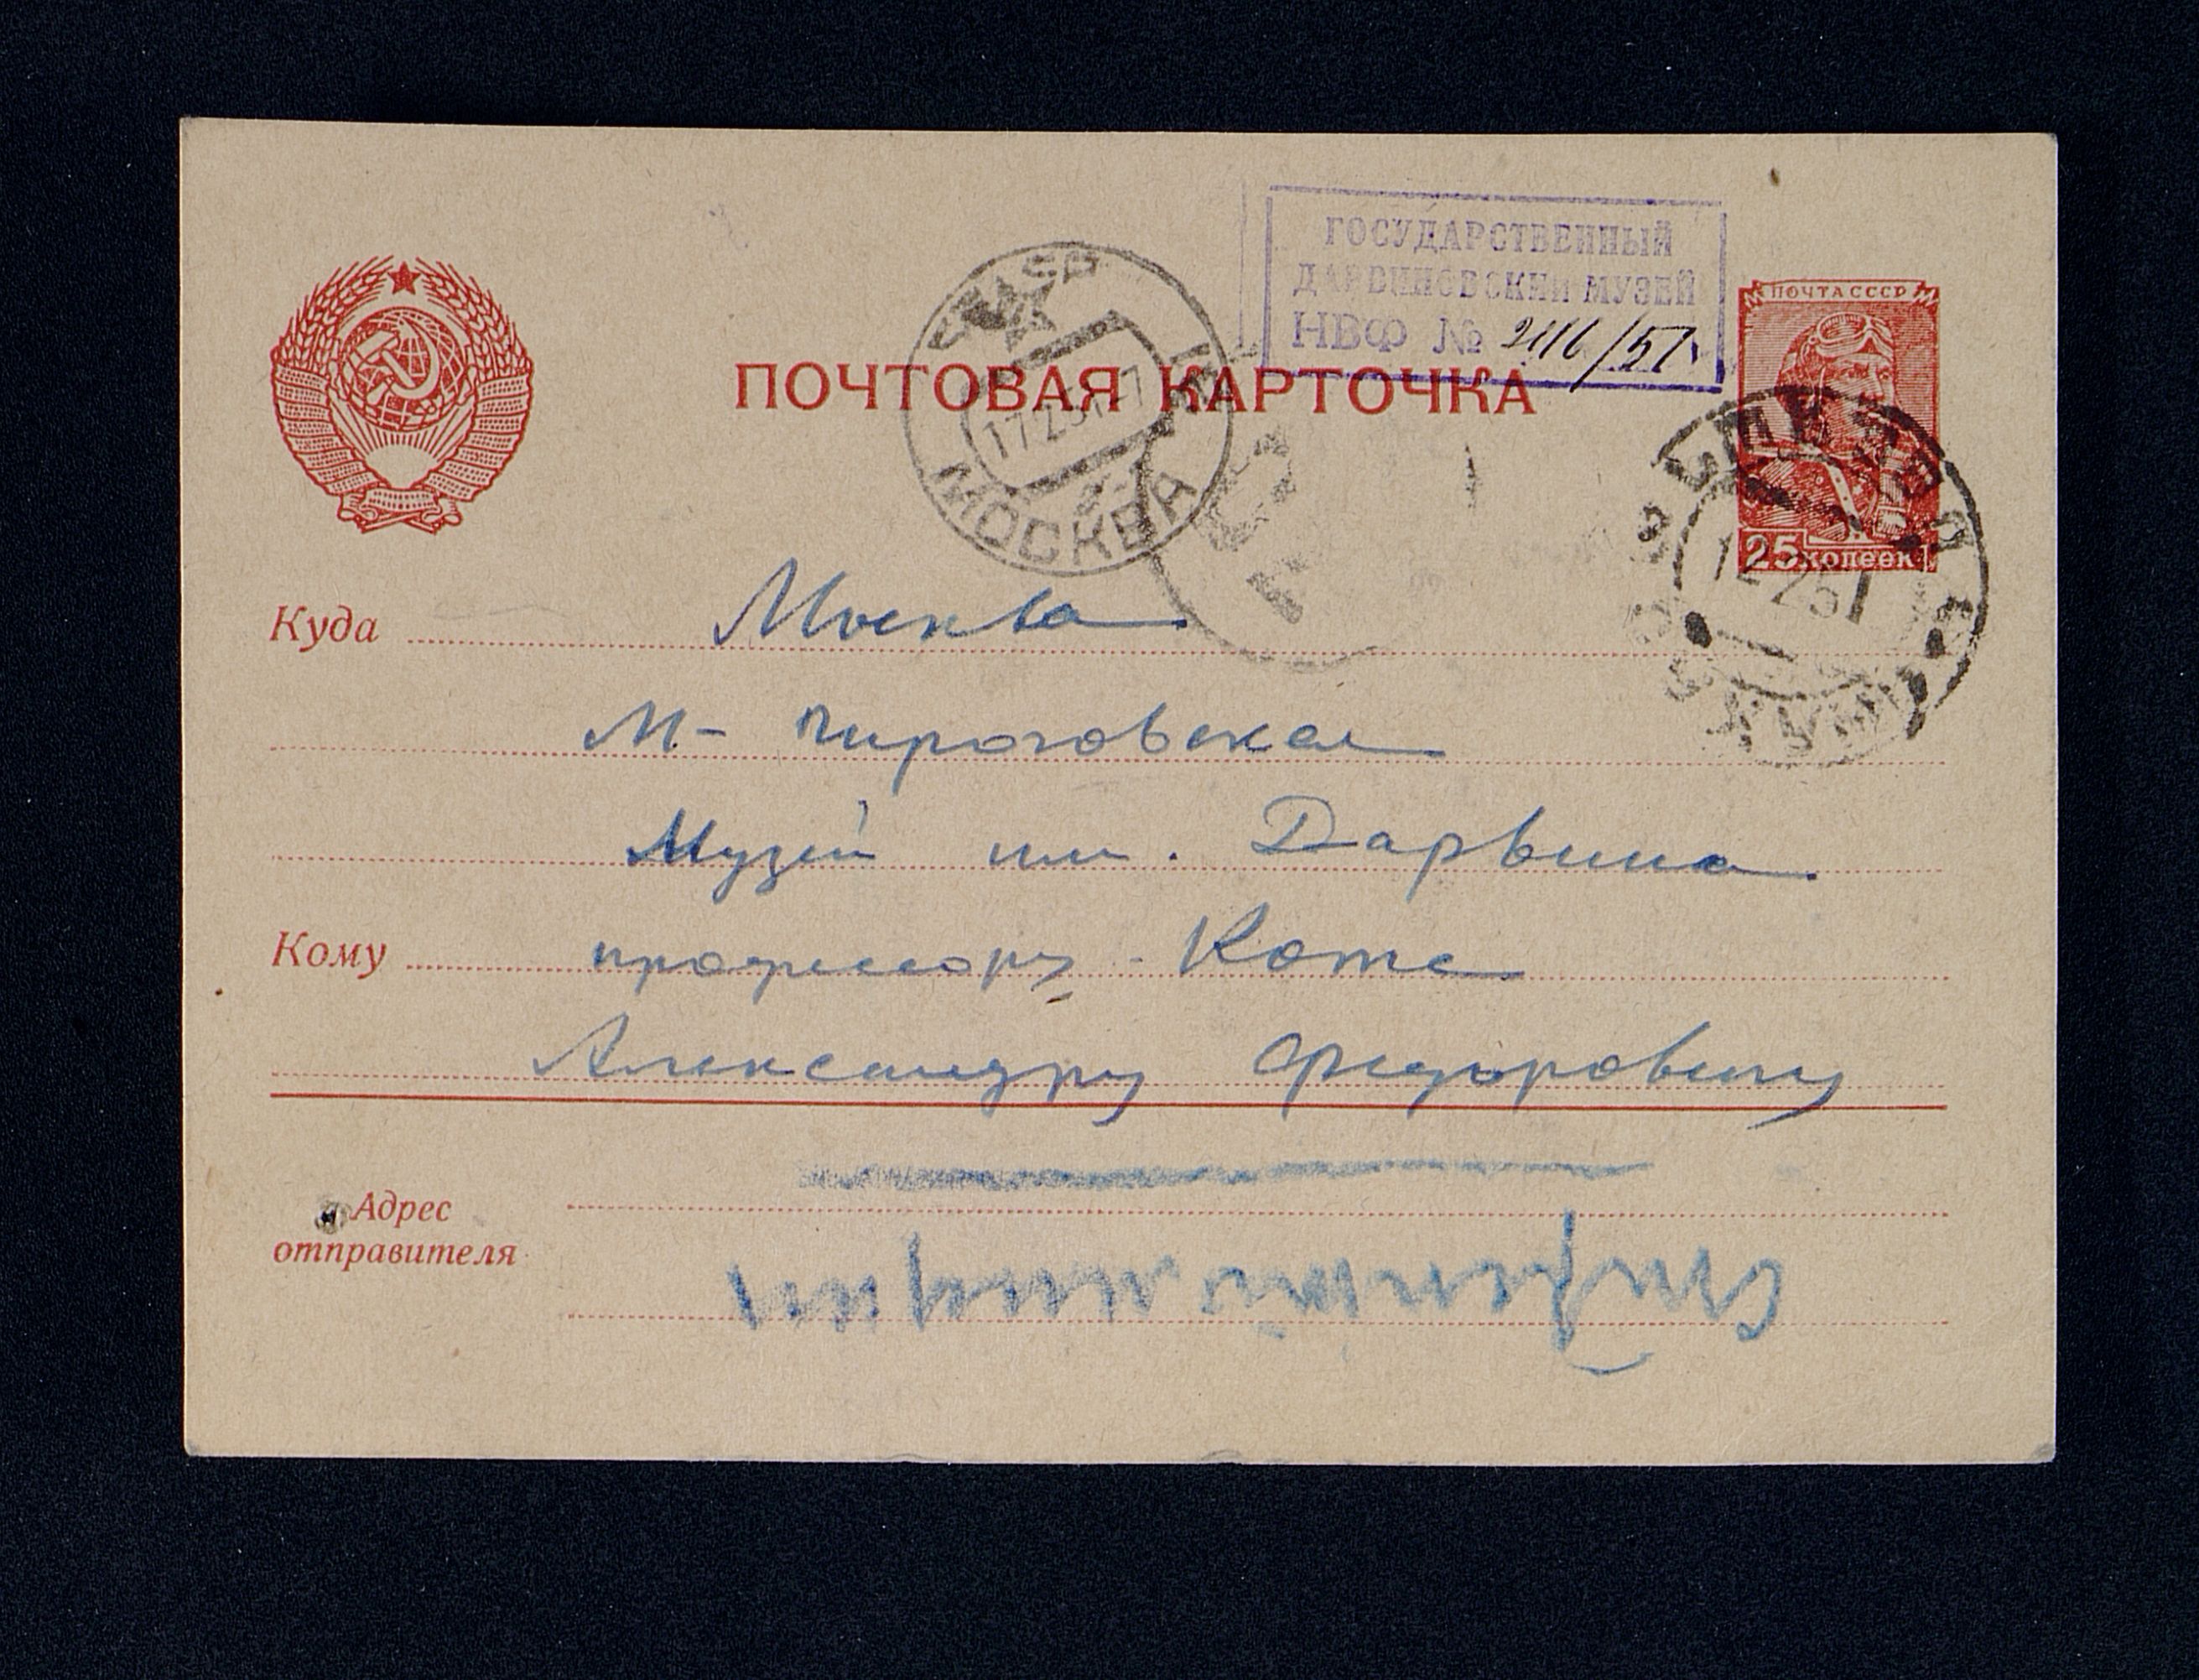 ГОСУДАРСТВЕННЫЙ
ДАРВИНОВСКИЙ МУЗЕЙ
НВФ № 2116/57
ПОЧТА СССР
25 копеек
ПОЧТОВАЯ КАРТОЧКА
МОСКВА
17251-7
Куда Москва
М- Пироговская
Музей им. Дарвина
Кому профессору Котс
Александру Федоровичу
Адрес
отправителя